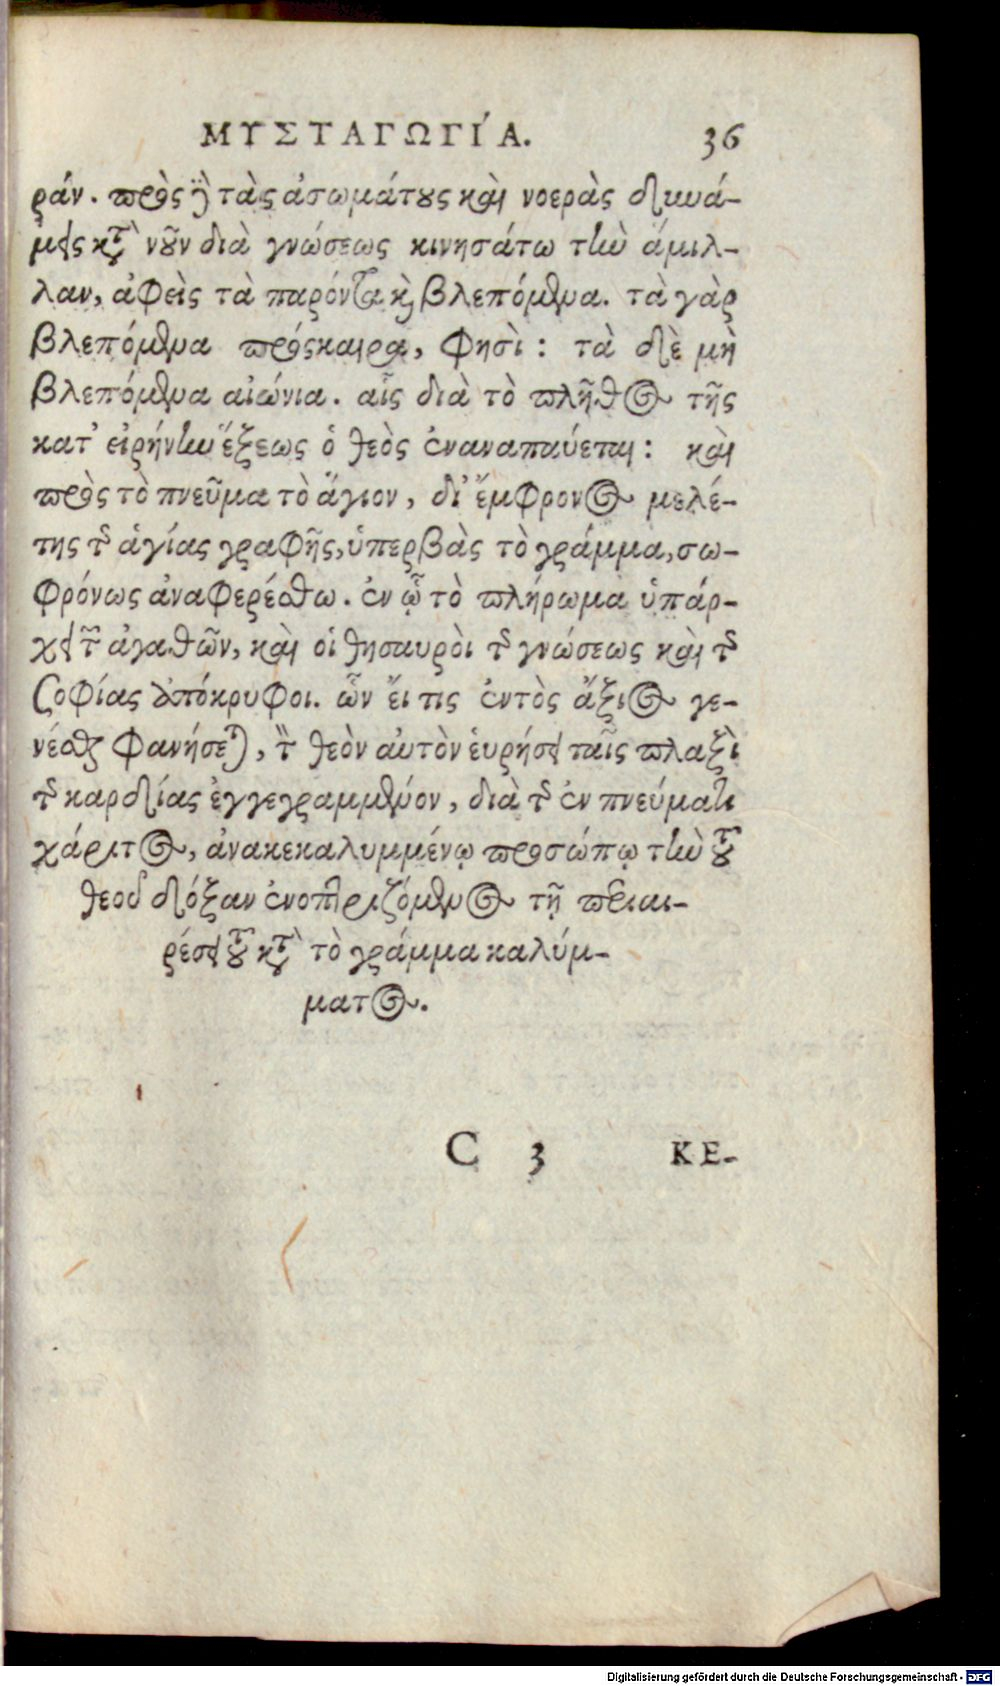 ΜΥΣΤΑΓΩΓΊΑ. 36
ράν. πρὸς δὲ τὰς ἀσωμάτους καὶ νοερὰς δυνά-
μεις κατὰ νοῦν διὰ γνώσεως κινησάτω τὴν ἅμιλ-
λαν, ἀφεὶς τὰ παρόντα καὶ βλεπόμενα. τὰ γὰρ
βλεπόμενα πρόσκαιρα, φησὶ: τὰ δὲ μὴ
βλεπόμενα αἰώνια. αἷς διὰ τὸ πλῆθος τῆς
κατ' εἰρήνην ἕξεως ὁ θεὸς ἐναναπαύεται: καὶ
πρὸς τὸ πνεῦμα τὸ ἅγιον, δι' ἔμφρονος μελέ-
της τῆς ἁγίας γραφῆς, ὑπερβὰς τὸ γράμμα, σω-
φρόνως ἀναφερέσθω. ἐν ᾧ τὸ πλήρωμα ὑπάρ-
χει τῶν ἀγαθῶν, καὶ οἱ θησαυροὶ τῆς γνώσεως καὶ τῆς
σοφίας ἀπόκρυφοι. ὧν ἔι τις ἐντὸς ἄξιος γε-
νέσθαι φανήσεται, τὸν θεὸν αὐτὸν ἑυρήσει ταῖς πλαξὶ
τῆς καρδίας ἐγγεγραμμένον, διὰ τῆς ἐν πνεύματι
χάριτος, ἀνακεκαλυμμένῳ προσώπῳ τὴν τοῦ
θεοῦ δόξαν ἐνοπτριζόμενος τῇ περιαι-
ρέσει τοῦ κατὰ τὸ γράμμα καλύμ-
ματος.
C 3 ΚΕ-
Digitalisierung gefördert durch die Deutsche Forschungsgemeinschaft - DFG